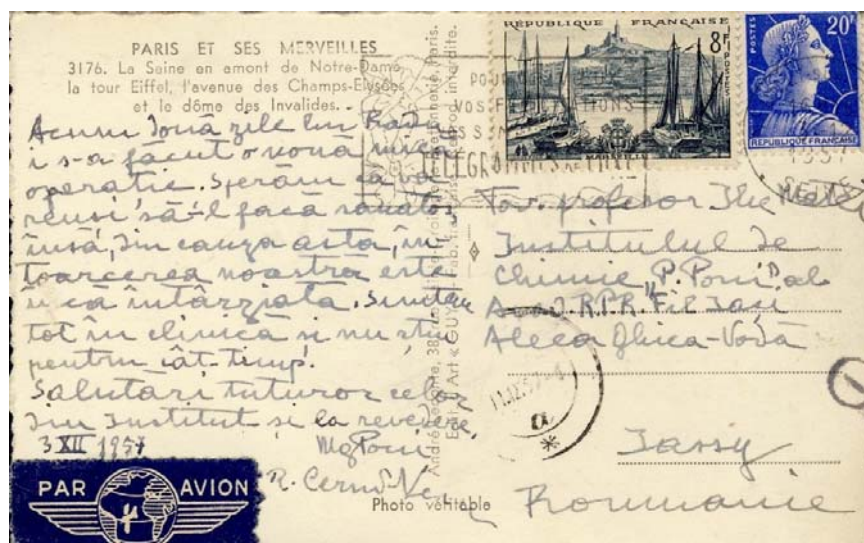 PARIS ET SES MERVEILLES
3176. La Seine en amont de Notre-Dame,
la tour Eiffel, l'avenue des Champs-Elysées
et le dôme des Invalides.
Acum două zile lui Rad
i s-a făcut o nouă mică
operație. Sperăm că va
reuși să-l facă sănătos
însă, din cauza asta, în
toarcerea noastră este
în că întârziată. Suntem
tot în clinică și nu știu
pentru cât timp.
Salutări tuturor celor
din Institut și la revedere,
3 XII 1957
Mg Poni
R. Cernă-Ve
PAR AVION
Photo véritable
RÉPUBLIQUE FRANÇAISE
8F
MARSEILLE
POSTES
20F
RÉPUBLIQUE FRANÇAISE
VOS FÉLICITATIONS
TÉLÉGRAMMES
Tov. profesor Ilie Matei
Institutul de
Chimie "P. Poni" al
Acad. R.P.R. Fil Iași
Aleea Ghica-Vodă
Iassy
Roumanie